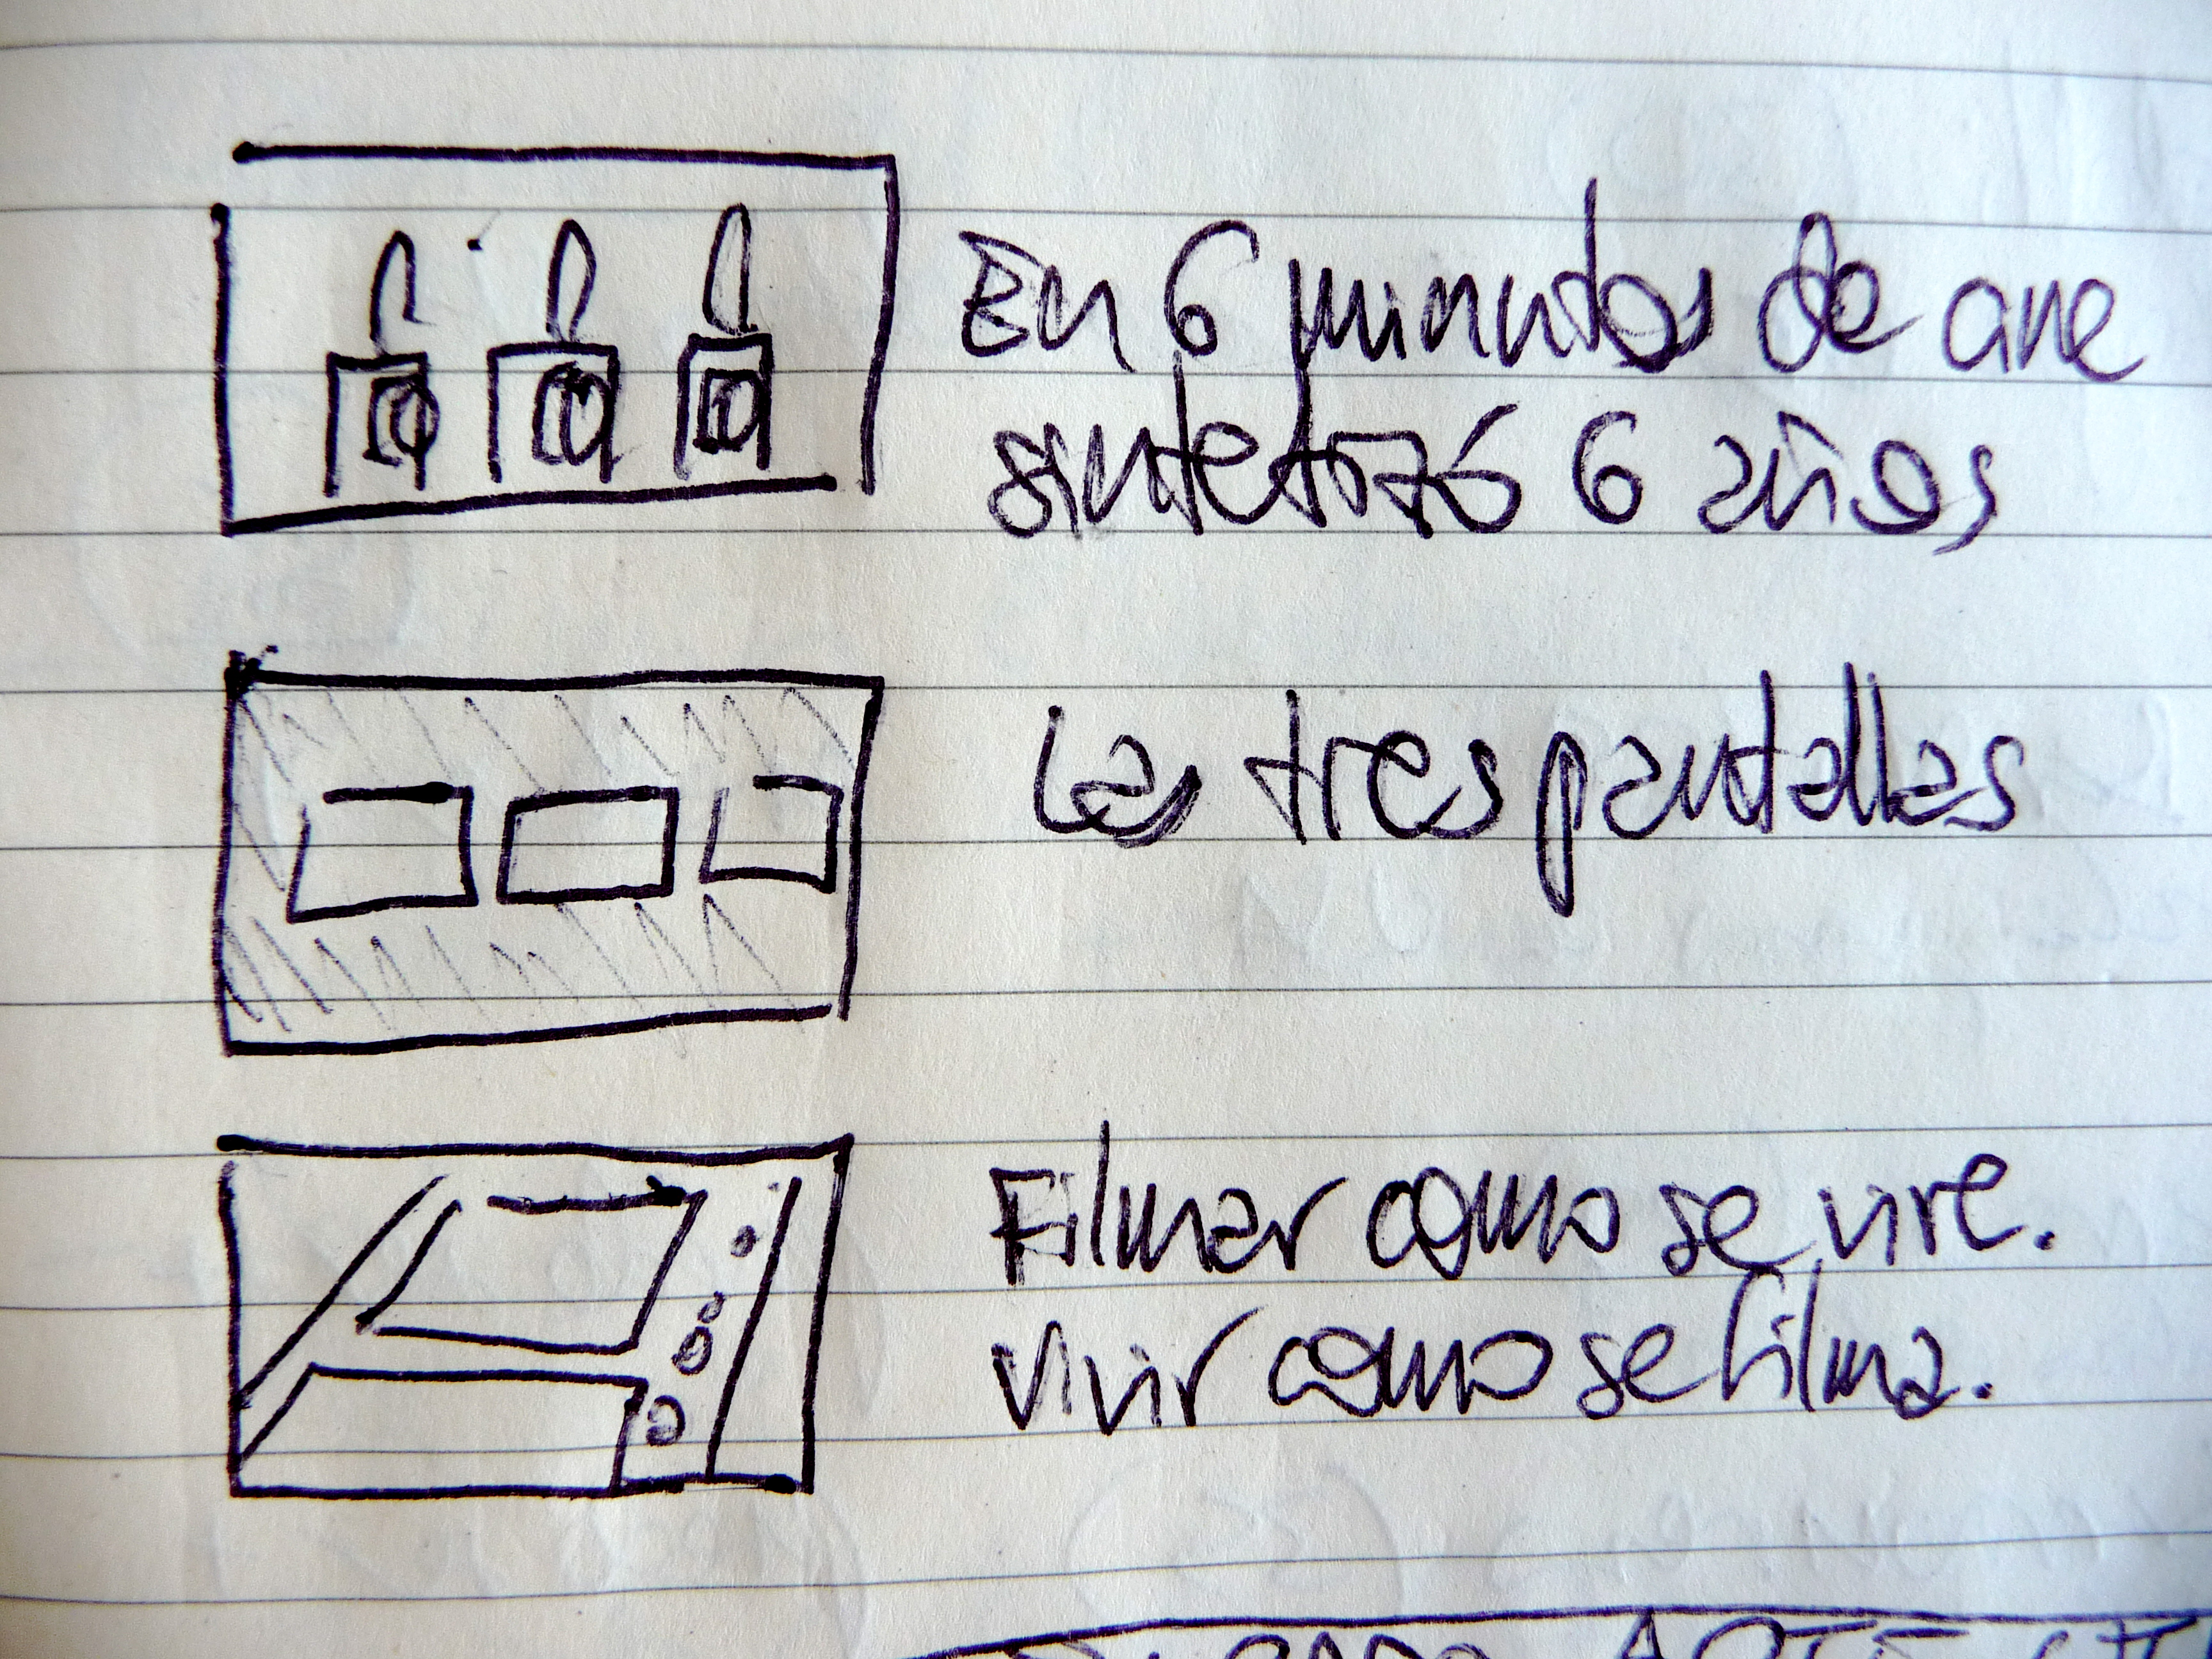 En 6 minutos de
sintetizó 6 años
Las tres pantallas
Filmar como se vive.
Vivir como se filma.